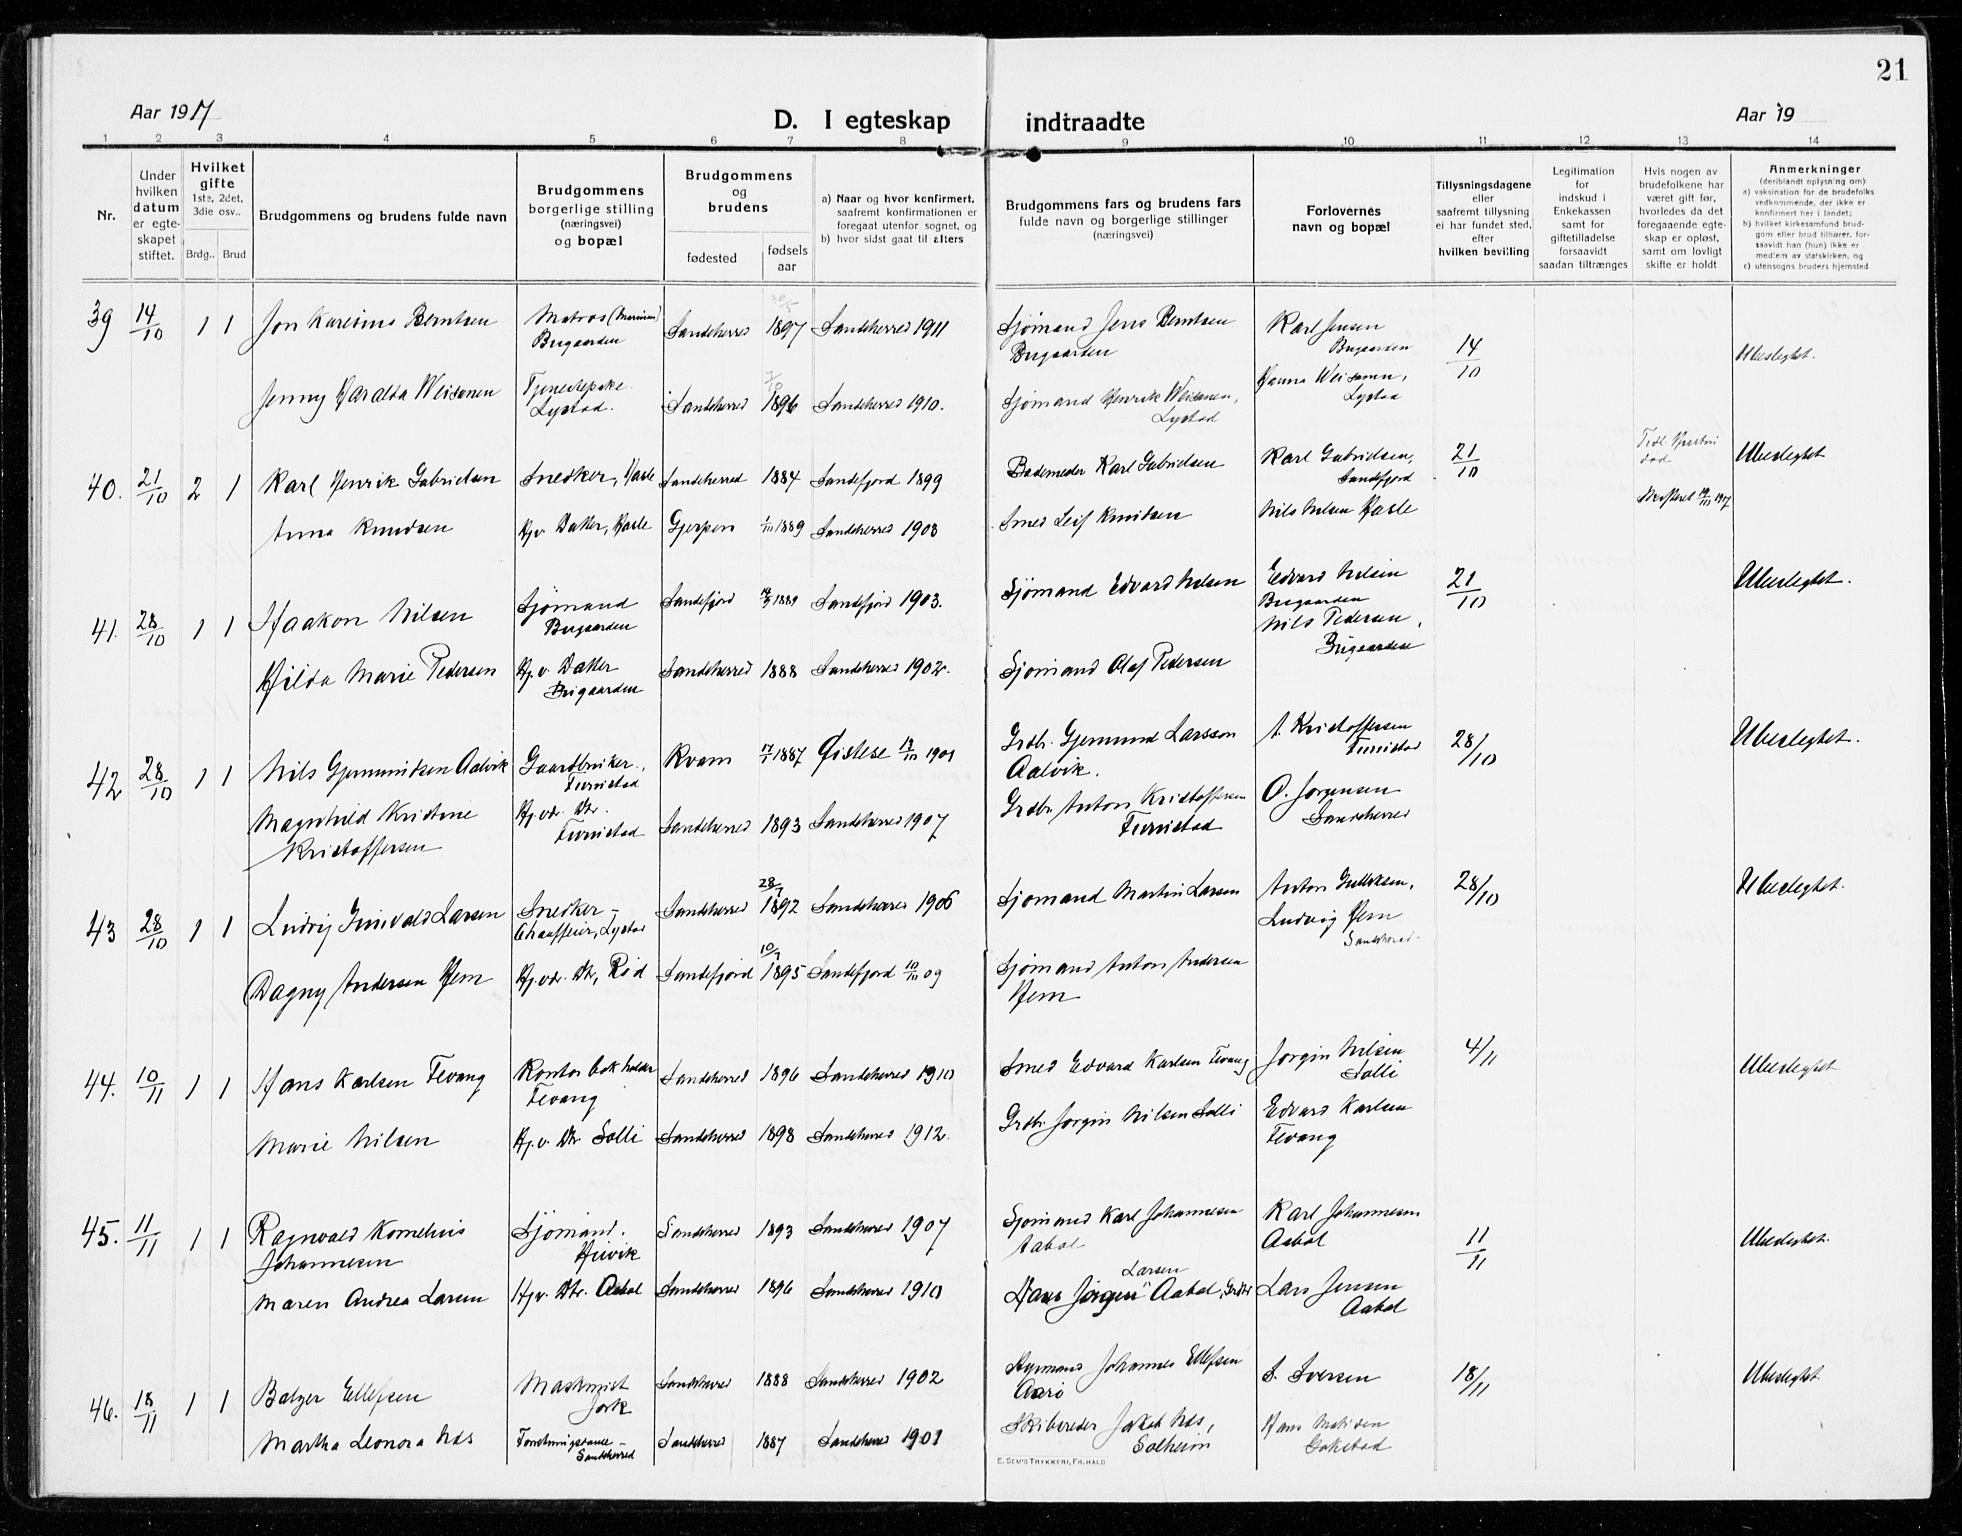 21
Aar 1917
D. I egteskap indtraadte
Aar 19
1 2 3 4 5 6 7 8 9 10 11 12 13 14
Nr.
Under hvilken datum er egteskapet stiftet.
Hvilket gifte 1ste, 2det, 3die osv..
Brdg.. Brud
Brudgommens og brudens fulde navn
Brudgommens borgerlige stilling (næringsvei) og bopæl
Brudgommens og brudens
fødested
fødsels aar
a) Naar og hvor konfirmert, saafremt konfirmationen er foregaat utenfor sognet, og
b) hvor sidst gaat til alters
Brudgommens fars og brudens fars fulde navn og borgerlige stillinger (næringsvei)
Forlovernes navn og bopæl
Tillysningsdagene eller saafremt tillysning ei har fundet sted, efter hvilken bevilling
Legitimation for indskud i Enkekassen samt for giftetilladelse forsaavidt saadan tiltrænges
Hvis nogen av brudefolkene har været gift før, hvorledes da det foregaaende egteskap er opløst, samt om lovligt skifte er holdt
Anmerkninger (deriblandt oplysning om):
a) vaksination for de brudefolks vedkommende, der ikke er konfirmert her i landet;
b) hvilket kirkesamfund brudgom eller brud tilhører, forsaavidt han (hun) ikke er medlem av statskirken, og
c) utensogns bruders hjemsted
39 14/10 1 1 Jon Karesius Berntsen Matros (Marinen) Sandeherred 1897 Sandeherred 1911 Sjømand Jens Berntsen Karl Jensen 14/10 Ubeslegtet.
Bugaarden Bugaarden Bugaarden
Jenny Haralda Weisonen Tjenestepike Sandeherred 7/10 1896 Sandeherred 1910. Sjømand Henrik Weisonen, Hanna Weisonen,
Lystad. Lystad Lystad
40. 21/10 2 1 Karl Henrik Gabrielsen Snedker, Hasle Sandeherred 1884 Sandefjord 1899 Bademester Karl Gabrielsen Karl Gabrielsen, 21/10 Ubeslegtet
Sandefjord
Anna Knudsen Hjv. Datter, Hasle Gjerpen 1889 Sandeherred 1903 Smed Leif Knudsen Nils Nilsen Hasle
41. 28/10 1 1 Haakon Nilsen Sjømand Sandefjord 1889 Sandefjord 1903. Sjømand Edvard Nilsen Edvard Nilsen 21/10 Ubeslegtet.
Bugaarden Bugaarden
Hilda Marie Pedersen Hj. v. Datter Sandeherred 1888 Sandeherred 1902. Sjømand Olaf Pedersen Nils Pedersen,
Bugaarden Bugaarden
42 28/10 1 1 Nils Gjermundsen Aalvik Gaardbruker, Kvam 1887 Øistese 1901 Grdbr. Gjermund Larsson A. Kristoffersen 28/10 Ubeslegtet.
Furustad Aalvik. Furustad
Magnhild Kristine Hj. vær. Dtr. Sandeherred 1893 Sandeherred 1907 Grdbr. Anton Kristoffersen O. Jorgensen
Kristoffersen Furustad Furustad Sandeherred
43 28/10 1 1 Ludvig Gunvald Larsen Snedker - Sandeherred 28/7 1892 Sandeherred 1906 Sjomand Martin Larsen Anton Gulliksen, 28/10 Ubeslegtet.
Chauffeur, Lystad Ludvig Hem
Sandeherred
Dagny Andersen Hem Hj. vær. Dtr, Rød Sandefjord 10/7 1895 Sandefjord 09 Sjømand Anton Andersen
Hem
44. 10/11 1 1 Hans Karlsen Fevang Kontor bokholder Sandeherred 1896 Sandeherred 1910 Smed Edvard Karlsen Fevang Jorgin Nilsen 4/11 Ubeslegtet
Fevang Solli
Marie Nilsen Hj. v. Dtr Solli Sandeherred 1898 Sandeherred 1912. Grdbr. Jorgin Nilsen Solli Edvard Karlsen
Fevang
45. 11/11 1 1 Ragnvald Kornelius Sjømand. Sandeherred 1893 Sandeherred 1907 Sjømand Karl Johannesen Karl Johannesen 11/11 Ubeslegtet.
Johannesen Aabol Aabol
Maren Andrea Larsen Hjv. Dtr. Aabol Sandeherred 1896 Sandeherred 1910 Hans Jörgen Larsen Aabol, Grdbr Lars Jensen
Aabol
46. 18/11 1 1 Balzer Ellefsen Maskinist Sandeherred 1888 Sandeherred 1902 Styrmand Johannes Ellefsen S. Iversen 18/11 Ubeslegtet.
Aarø
Martha Leonora Næs Forretningsdame - Sandeherred 1887 Sandeherred 1901 Skibsreder Jakob Næs, Hans
Sandeherred Solheim Gokstad
E. SEM'S TRYKKERI, FR.HALD